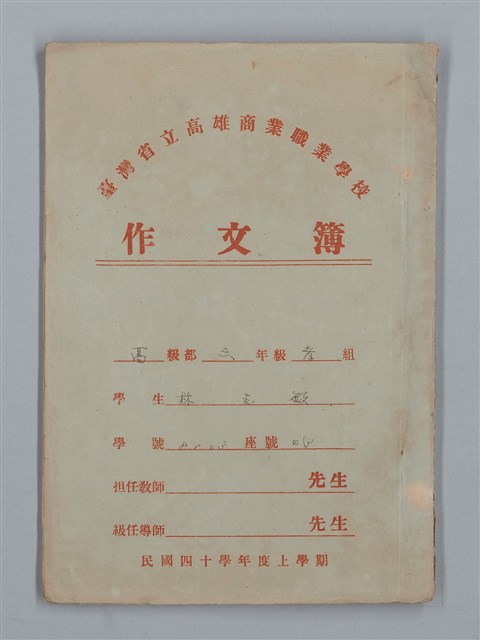 臺灣省立高雄商業職業學校
作文簿
高級部三年級孝組
學生林志敏
學號 座號
担任教師 先生
級任導師 先生
民國四十學年度上學期